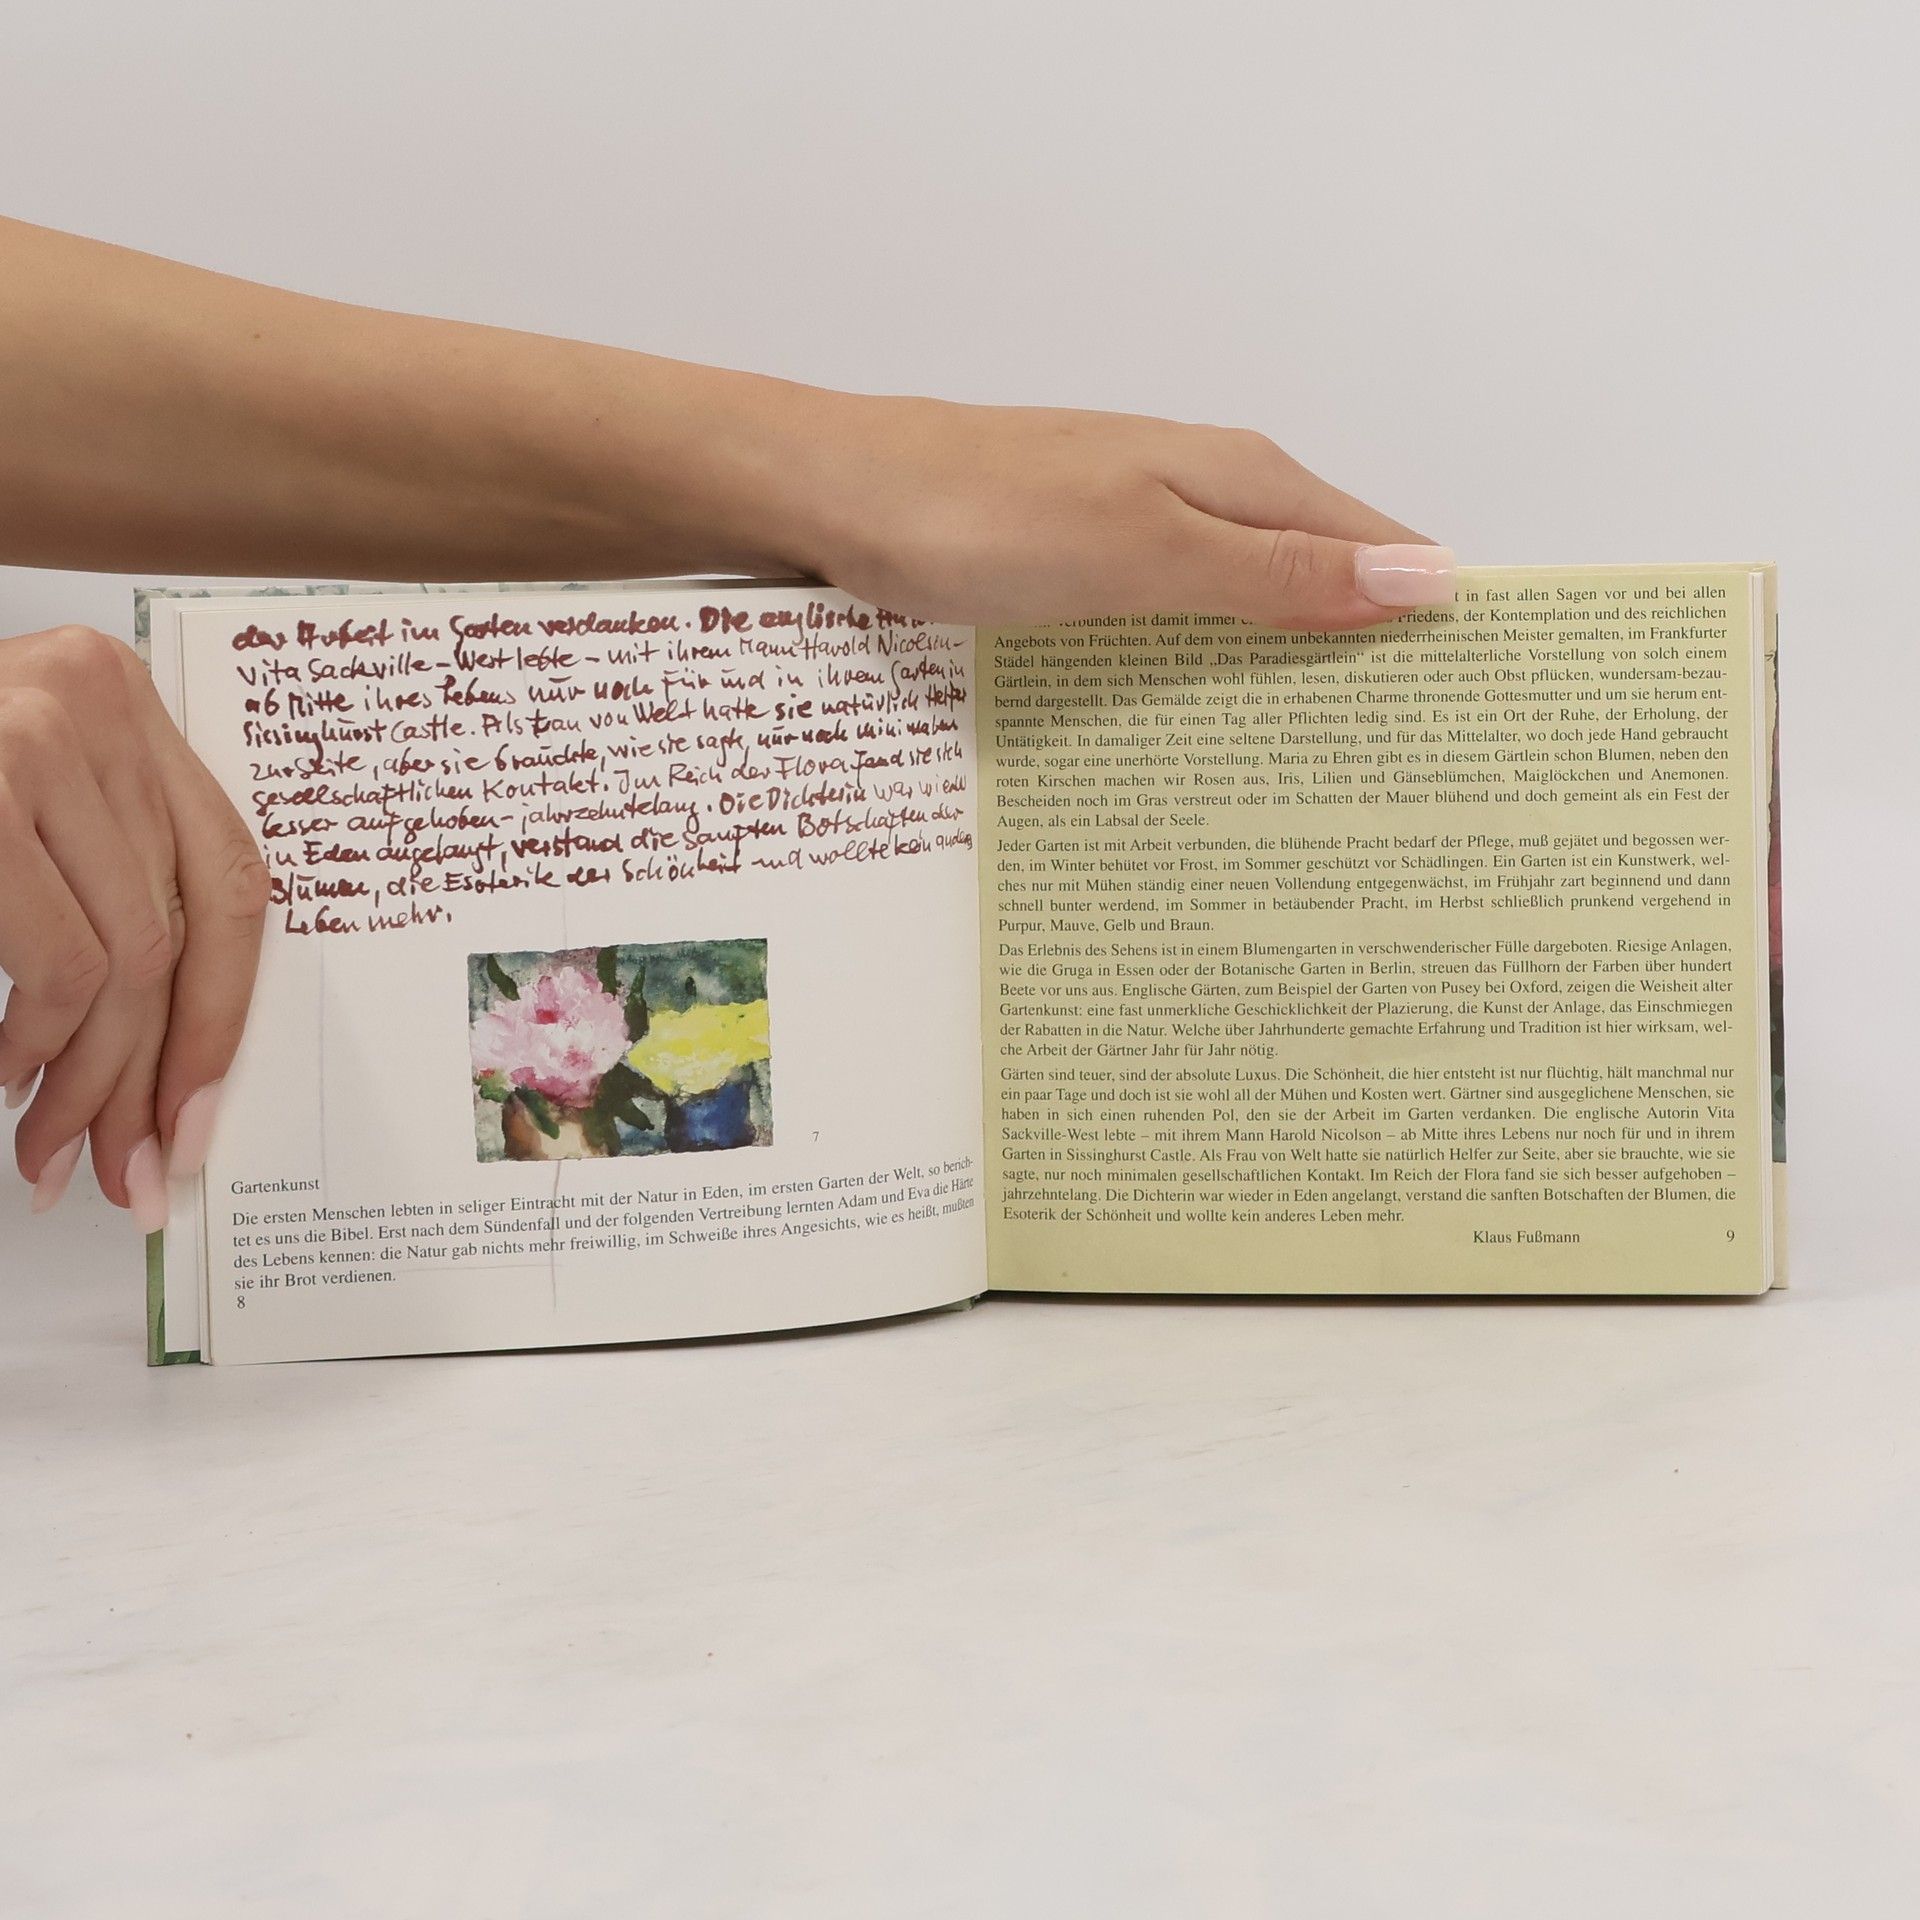 der Arbeit im Garten verdanken. Die englische
Vita Sackville-West lebte - mit ihrem Mann Harold Nicolson -
ab Mitte ihres Lebens nur noch für und in ihrem Garten in
Sissinghurst Castle. Als Frau von Welt hatte sie natürlich Helfer
zur Seite, aber sie brauchte, wie sie sagte, nur noch minimalen
gesellschaftlichen Kontakt. Im Reich der Flora fand sie sich
besser aufgehoben - jahrzehntelang. Die Dichterin war wieder
in Eden angelangt, verstand die sanften Botschaften der
Blumen, die Esoterik der Schönheit und wollte kein anderes
Leben mehr.
7
Gartenkunst
Die ersten Menschen lebten in seliger Eintracht mit der Natur in Eden, im ersten Garten der Welt, so berich-
tet es uns die Bibel. Erst nach dem Sündenfall und der folgenden Vertreibung lernten Adam und Eva die Härte
des Lebens kennen: die Natur gab nichts mehr freiwillig, im Schweiße ihres Angesichts, wie es heißt, mußten
sie ihr Brot verdienen.
8
in fast allen Sagen vor und bei allen
verbunden ist damit immer Friedens, der Kontemplation und des reichlichen
Angebots von Früchten. Auf dem von einem unbekannten niederrheinischen Meister gemalten, im Frankfurter
Städel hängenden kleinen Bild „Das Paradiesgärtlein“ ist die mittelalterliche Vorstellung von solch einem
Gärtlein, in dem sich Menschen wohl fühlen, lesen, diskutieren oder auch Obst pflücken, wundersam-bezau-
bernd dargestellt. Das Gemälde zeigt die in erhabenen Charme thronende Gottesmutter und um sie herum ent-
spannte Menschen, die für einen Tag aller Pflichten ledig sind. Es ist ein Ort der Ruhe, der Erholung, der
Untätigkeit. In damaliger Zeit eine seltene Darstellung, und für das Mittelalter, wo doch jede Hand gebraucht
wurde, sogar eine unerhörte Vorstellung. Maria zu Ehren gibt es in diesem Gärtlein schon Blumen, neben den
roten Kirschen machen wir Rosen aus, Iris, Lilien und Gänseblümchen, Maiglöckchen und Anemonen.
Bescheiden noch im Gras verstreut oder im Schatten der Mauer blühend und doch gemeint als ein Fest der
Augen, als ein Labsal der Seele.
Jeder Garten ist mit Arbeit verbunden, die blühende Pracht bedarf der Pflege, muß gejätet und begossen wer-
den, im Winter behütet vor Frost, im Sommer geschützt vor Schädlingen. Ein Garten ist ein Kunstwerk, wel-
ches nur mit Mühen ständig einer neuen Vollendung entgegenwächst, im Frühjahr zart beginnend und dann
schnell bunter werdend, im Sommer in betäubender Pracht, im Herbst schließlich prunkend vergehend in
Purpur, Mauve, Gelb und Braun.
Das Erlebnis des Sehens ist in einem Blumengarten in verschwenderischer Fülle dargeboten. Riesige Anlagen,
wie die Gruga in Essen oder der Botanische Garten in Berlin, streuen das Füllhorn der Farben über hundert
Beete vor uns aus. Englische Gärten, zum Beispiel der Garten von Pusey bei Oxford, zeigen die Weisheit alter
Gartenkunst: eine fast unmerkliche Geschicklichkeit der Plazierung, die Kunst der Anlage, das Einschmiegen
der Rabatten in die Natur. Welche über Jahrhunderte gemachte Erfahrung und Tradition ist hier wirksam, wel-
che Arbeit der Gärtner Jahr für Jahr nötig.
Gärten sind teuer, sind der absolute Luxus. Die Schönheit, die hier entsteht ist nur flüchtig, hält manchmal nur
ein paar Tage und doch ist sie wohl all der Mühen und Kosten wert. Gärtner sind ausgeglichene Menschen, sie
haben in sich einen ruhenden Pol, den sie der Arbeit im Garten verdanken. Die englische Autorin Vita
Sackville-West lebte – mit ihrem Mann Harold Nicolson – ab Mitte ihres Lebens nur noch für und in ihrem
Garten in Sissinghurst Castle. Als Frau von Welt hatte sie natürlich Helfer zur Seite, aber sie brauchte, wie sie
sagte, nur noch minimalen gesellschaftlichen Kontakt. Im Reich der Flora fand sie sich besser aufgehoben –
jahrzehntelang. Die Dichterin war wieder in Eden angelangt, verstand die sanften Botschaften der Blumen, die
Esoterik der Schönheit und wollte kein anderes Leben mehr.
Klaus Fußmann
9